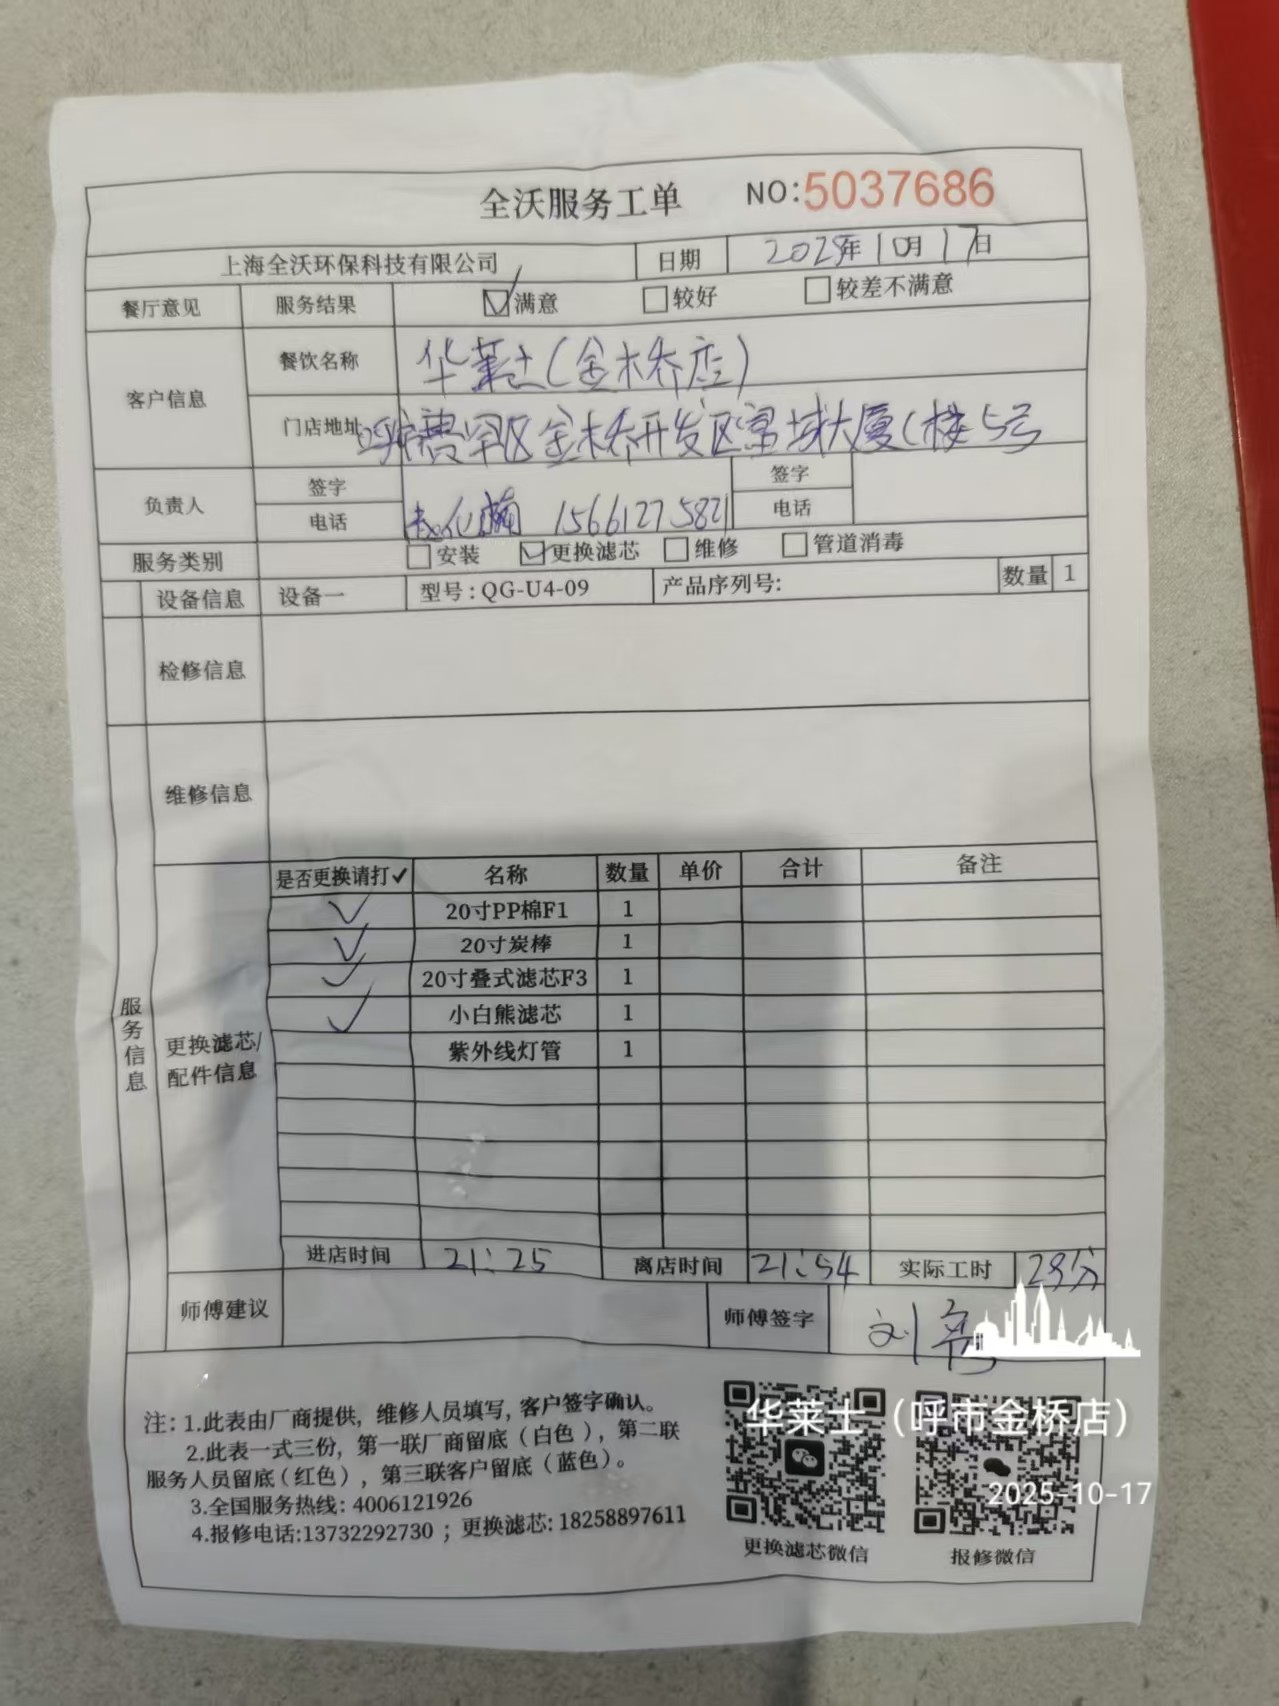 全沃服务工单 NO:5037686
上海全沃环保科技有限公司 日期 2025年10月17日
餐厅意见 服务结果 满意 较好 较差不满意
客户信息 餐饮名称 华莱士(金桥店)
门店地址 呼赛罕区金桥开发区富域大厦(楼5号
负责人 签字 签字
电话 15661275821 电话
服务类别 安装 更换滤芯 维修 管道消毒
设备信息 设备一 型号:QG-U4-09 产品序列号: 数量 1
检修信息
维修信息
服务信息
更换滤芯/配件信息
是否更换请打✓ 名称 数量 单价 合计 备注
✓ 20寸PP棉F1 1
✓ 20寸炭棒 1
✓ 20寸叠式滤芯F3 1
✓ 小白熊滤芯 1
紫外线灯管 1
进店时间 21:25 离店时间 21:54 实际工时 29分
师傅建议 师傅签字 刘亮
注:1.此表由厂商提供,维修人员填写,客户签字确认。
2.此表一式三份,第一联厂商留底(白色),第二联
服务人员留底(红色),第三联客户留底(蓝色)。
3.全国服务热线:4006121926
4.报修电话:13732292730;更换滤芯:18258897611
更换滤芯微信 报修微信
华莱士(呼市金桥店)
2025-10-17